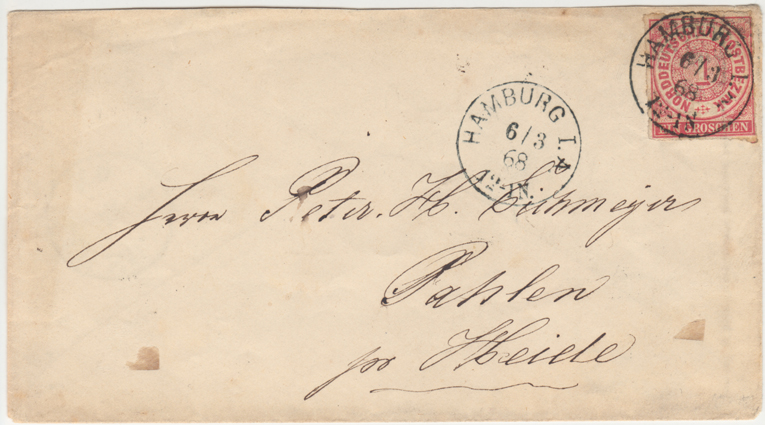 HAMBURG I.
6/3
68
NORDDEUTSCHER POSTBEZIRK
EIN GROSCHEN
HAMBURG I. A
6/3
68
12-1N.
Herrn Peter. H.
Pahlen
pr Heide